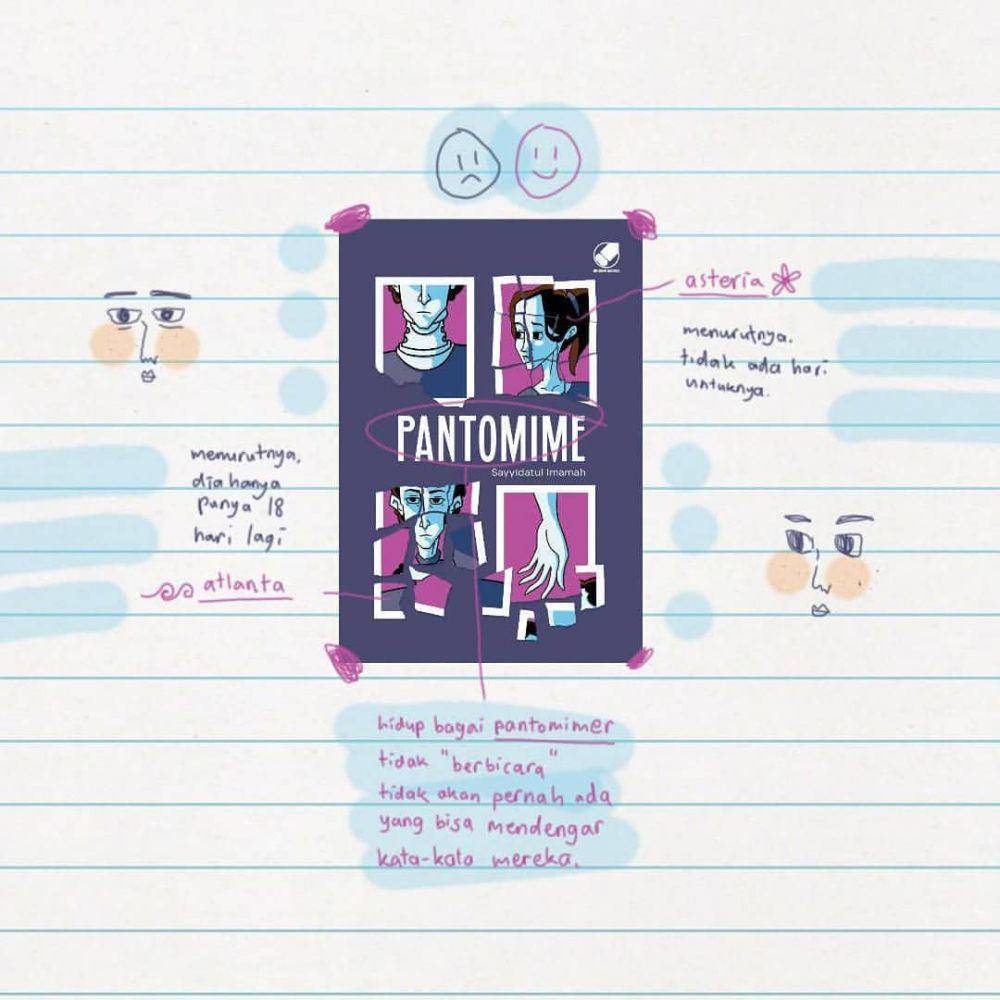 asteria
menurutnya.
tidak ada hari
untuknya.
PANTOMIME
Sayyidatul Imamah
menurutnya,
dia hanya
punya 18
hari lagi
atlanta
hidup bagai pantomimer
tidak "berbicara"
tidak akan pernah ada
yang bisa mendengar
kata-kata mereka.